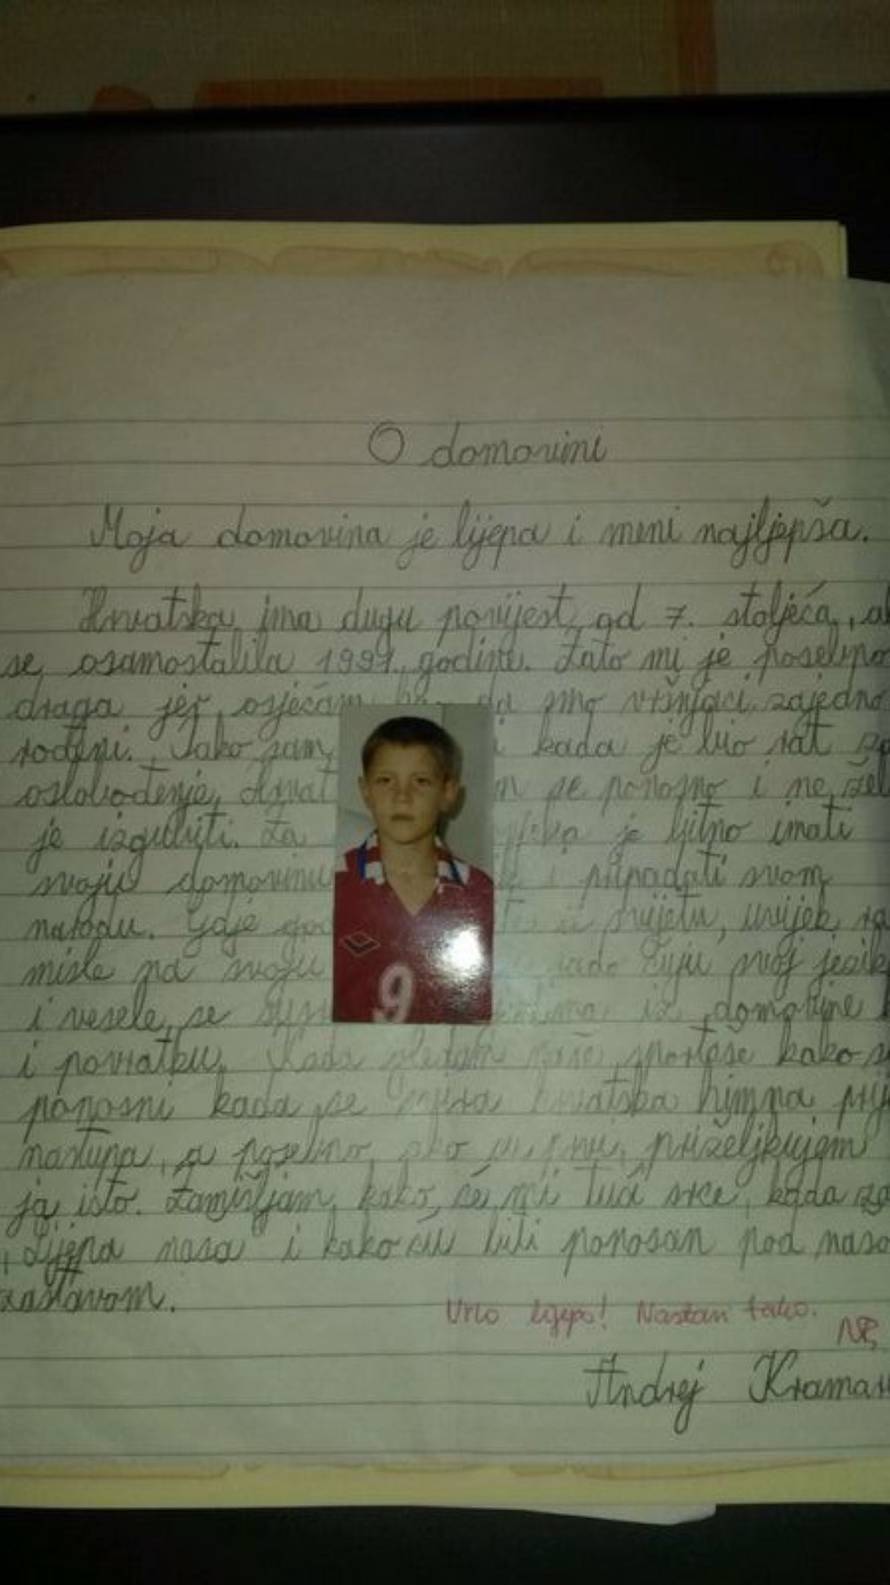 O domovini
Moja domovina je lijepa i meni najljepša.
Hrvatska ima dugu povijest od 7. stoljeća, al
se osamostalila 1991. godine. Zato mi je posebno
draga jer osjećam da smo vršnjaci zajedno
rođeni. Tako sam i kada je bio rat za
oslobođenje se ponosno i ne žel
je izgubiti. Za je bitno imati
svoju domovinu i pripadati svom
narodu. Gdje god u svijetu, uvijek ra
misle na svoju rado čuju svoj jezik
i vesele se iz domovine
i povratku. Kada gledam naše sportaše kako su
ponosni kada se svira hrvatska himna prij
nastupa, a posebno ako priželjkujem
ja isto. Zamišljam kako će mi tuć srce kada za
"Lijepa naša" i kako ću biti ponosan pod našo
zastavom.
Vrlo lijepo! Nastavi tako.
Andrej Kramar
9